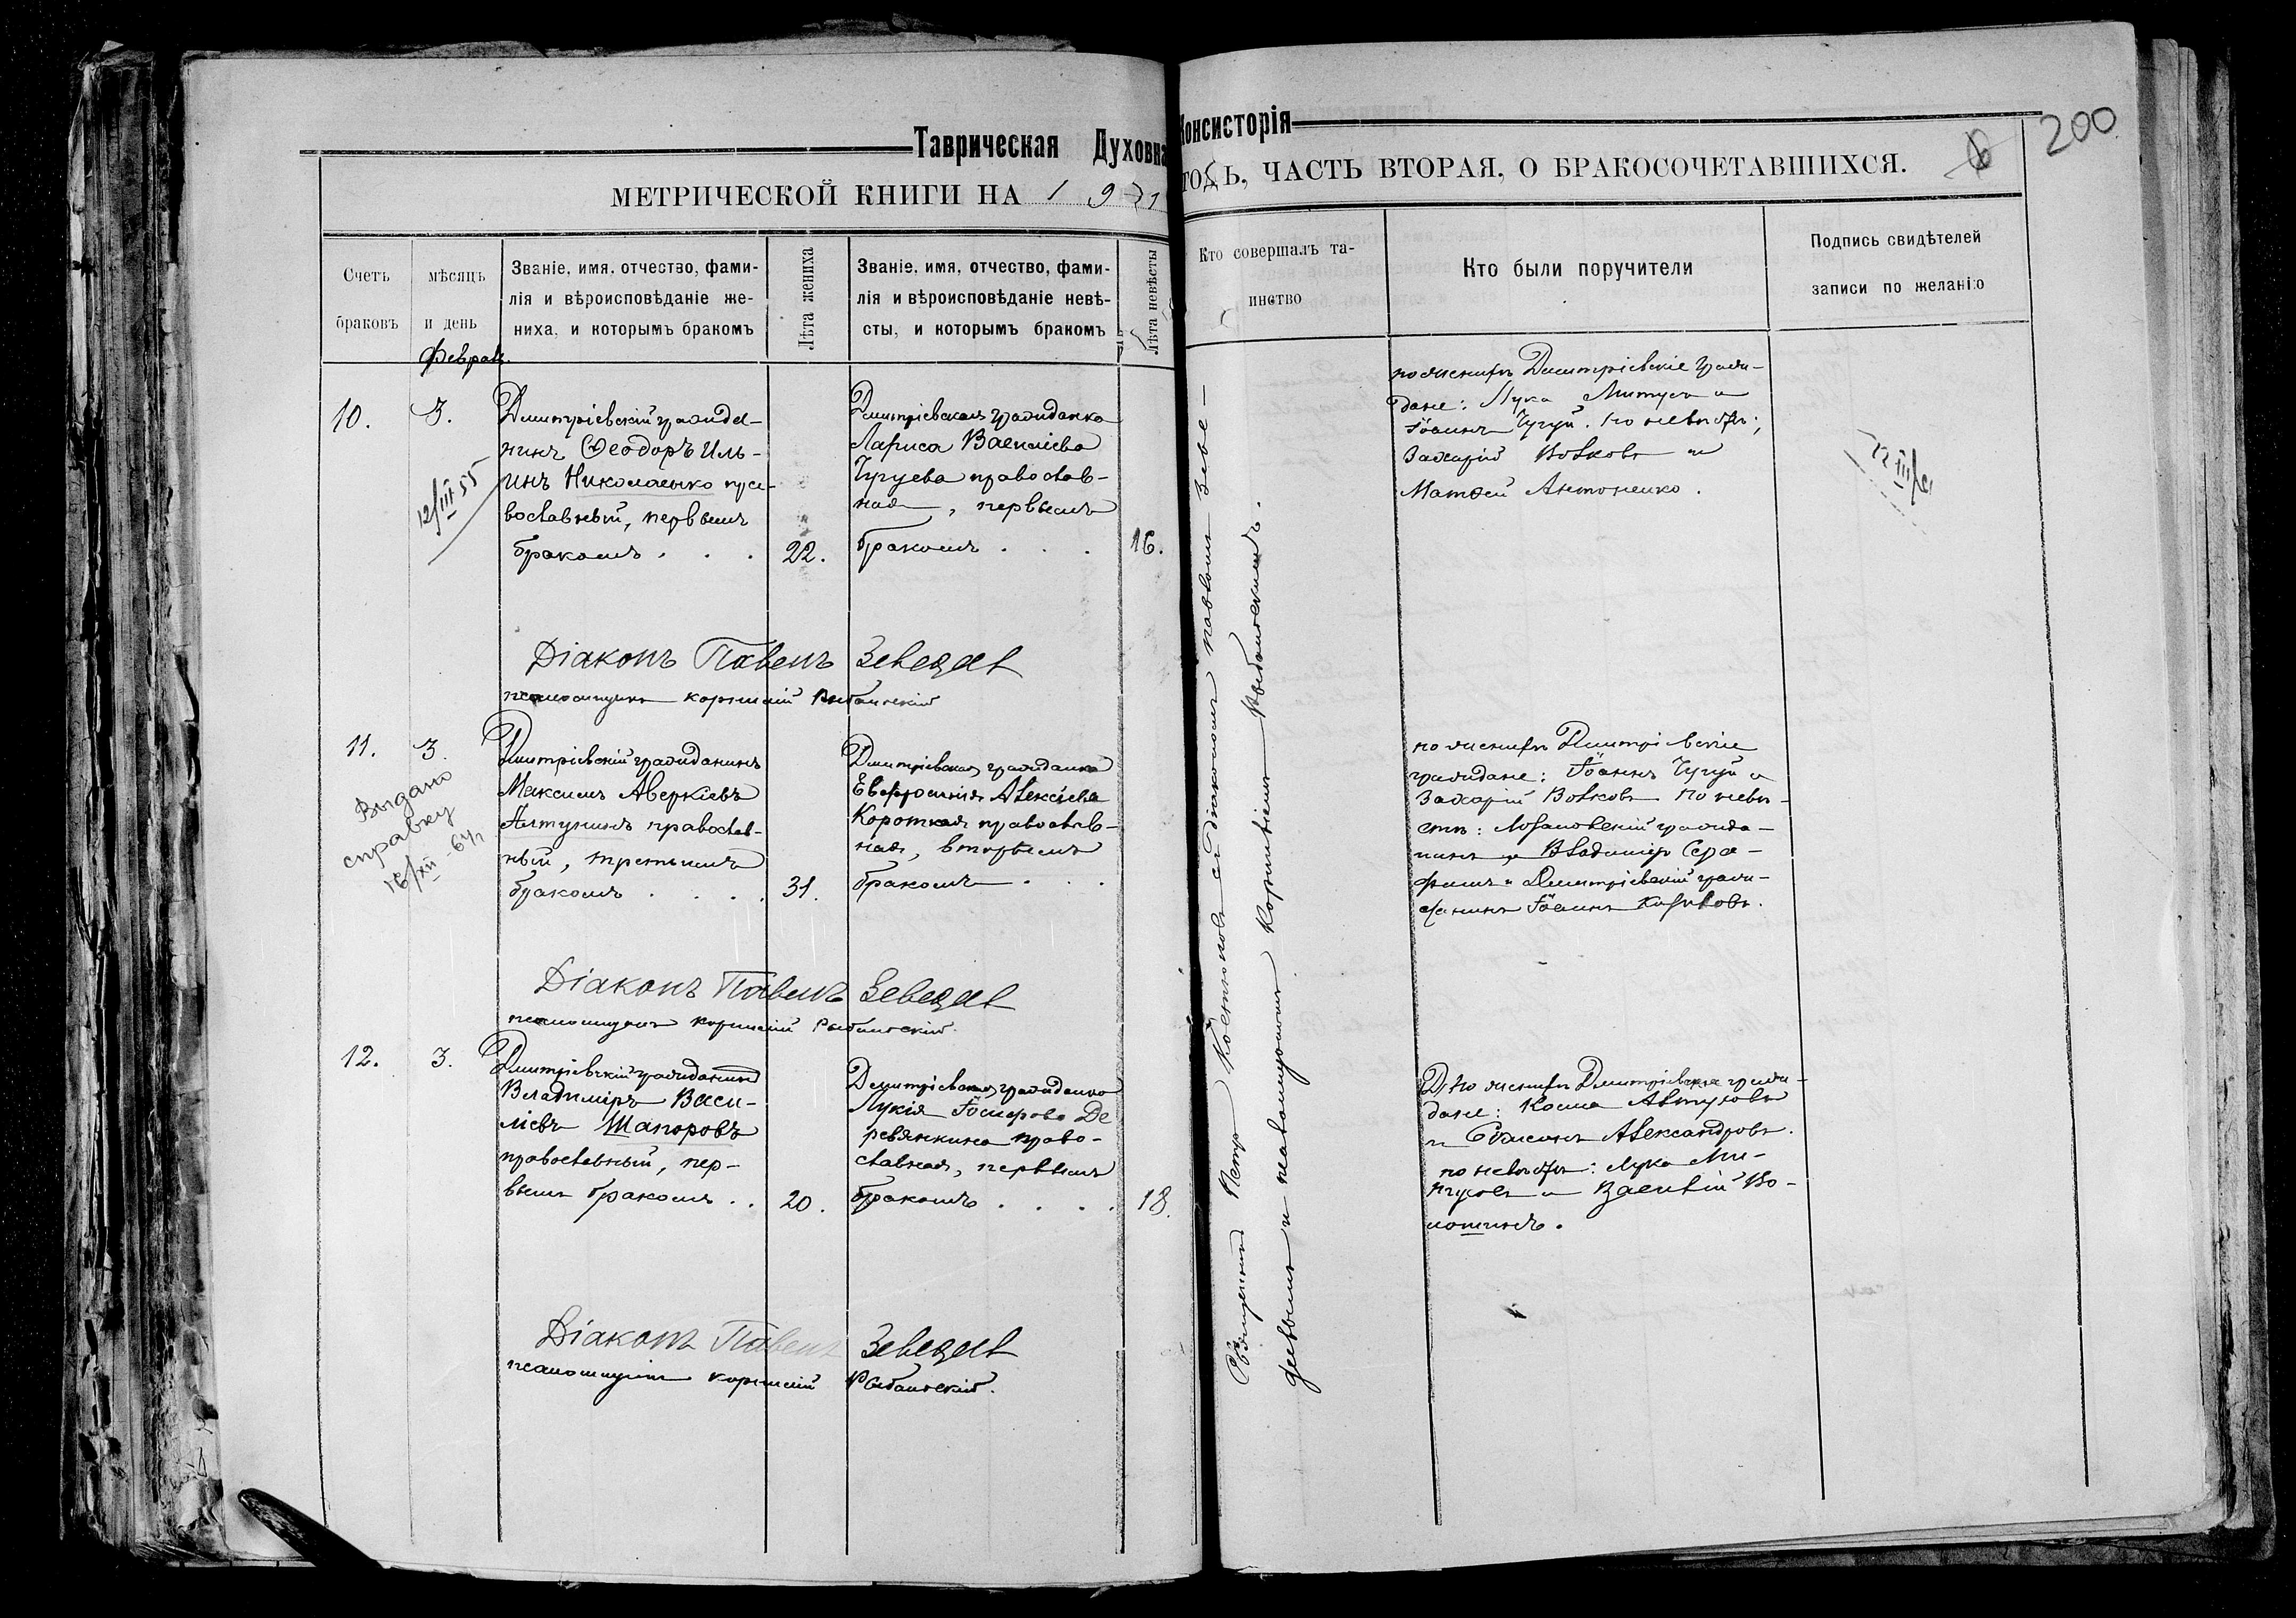 Таврическая Духовна
Консисторія
МЕТРИЧЕСКОЙ КНИГИ НА 1921
ГОДЪ, ЧАСТЬ ВТОРАЯ, О БРАКОСОЧЕТАВШИХСЯ.
200
Счетъ браковъ
мѣсяцъ и день
Званіе, имя, отчество, фами-
лія и вѣроисповѣданіе же-
ниха, и которымъ бракомъ
Лѣта жениха
Званіе, имя, отчество, фами-
лія и вѣроисповѣданіе невѣ-
сты, и которымъ бракомъ
Лѣта невѣсты
Кто совершалъ та-
инство
Кто были поручители
Подпись свидѣтелей
записи по желанію
Феврал.
10.
3.
12/III 55
Дмитріевскій гражда-
нинъ Ѳеодоръ Иль-
инъ Николаенко пра-
вославный, первымъ
бракомъ . . .
22.
Дмитріевская гражданка
Лариса Василіева
Чугуева православ-
ная, первымъ
бракомъ . . .
16.
по женихѣ Дмитріевскіе граж-
дане: Лука Митусъ и
Іоаннъ Чугуй. по невѣстѣ;
Захарій Волковъ и
Матѳей Антоненко.
22 III
Діаконъ Павелъ Зеведей
псаломщикъ Корнилій Рыбинскій
11.
3.
Выдано
справку
16/XII-64г
Дмитріевскій гражданинъ
Максимъ Аверкіевъ
православ-
ный, третьимъ
бракомъ . . . .
31.
Дмитріевская гражданка
Евфросинія Алексіева
Короткая православ-
ная, вторымъ
бракомъ . . .
по женихѣ Дмитріевскіе
граждане: Іоаннъ Чугуй и
Захарій Волковъ по невѣ-
стѣ: гражда-
нинъ Владимір Сера-
фимъ и Дмитріевскій граж-
данинъ Іоаннъ
Діаконъ Павелъ Зеведей
псаломщикъ Корнилій Рыбинскій.
12.
3.
Дмитріевскій гражданинъ
Владиміръ Васи-
ліевъ Шапоровъ
православный, пер-
вымъ бракомъ . .
20.
Дмитріевская гражданка
Лукія Де
ревянкина право-
славная, первымъ
бракомъ . . . .
18.
по женихѣ Дмитріевскіе граж-
дане: Косма
и Симеонъ Александровъ.
по невѣстѣ: Лука Ми-
тусовъ и Василій Во-
лошинъ.
Діаконъ Павелъ Зеведей
псаломщикъ Корнилій Рыбинскій.
Священникъ Петръ съ діакономъ Павломъ Зеве-
деевымъ и псаломщикомъ Корниліемъ Рыбинскимъ.